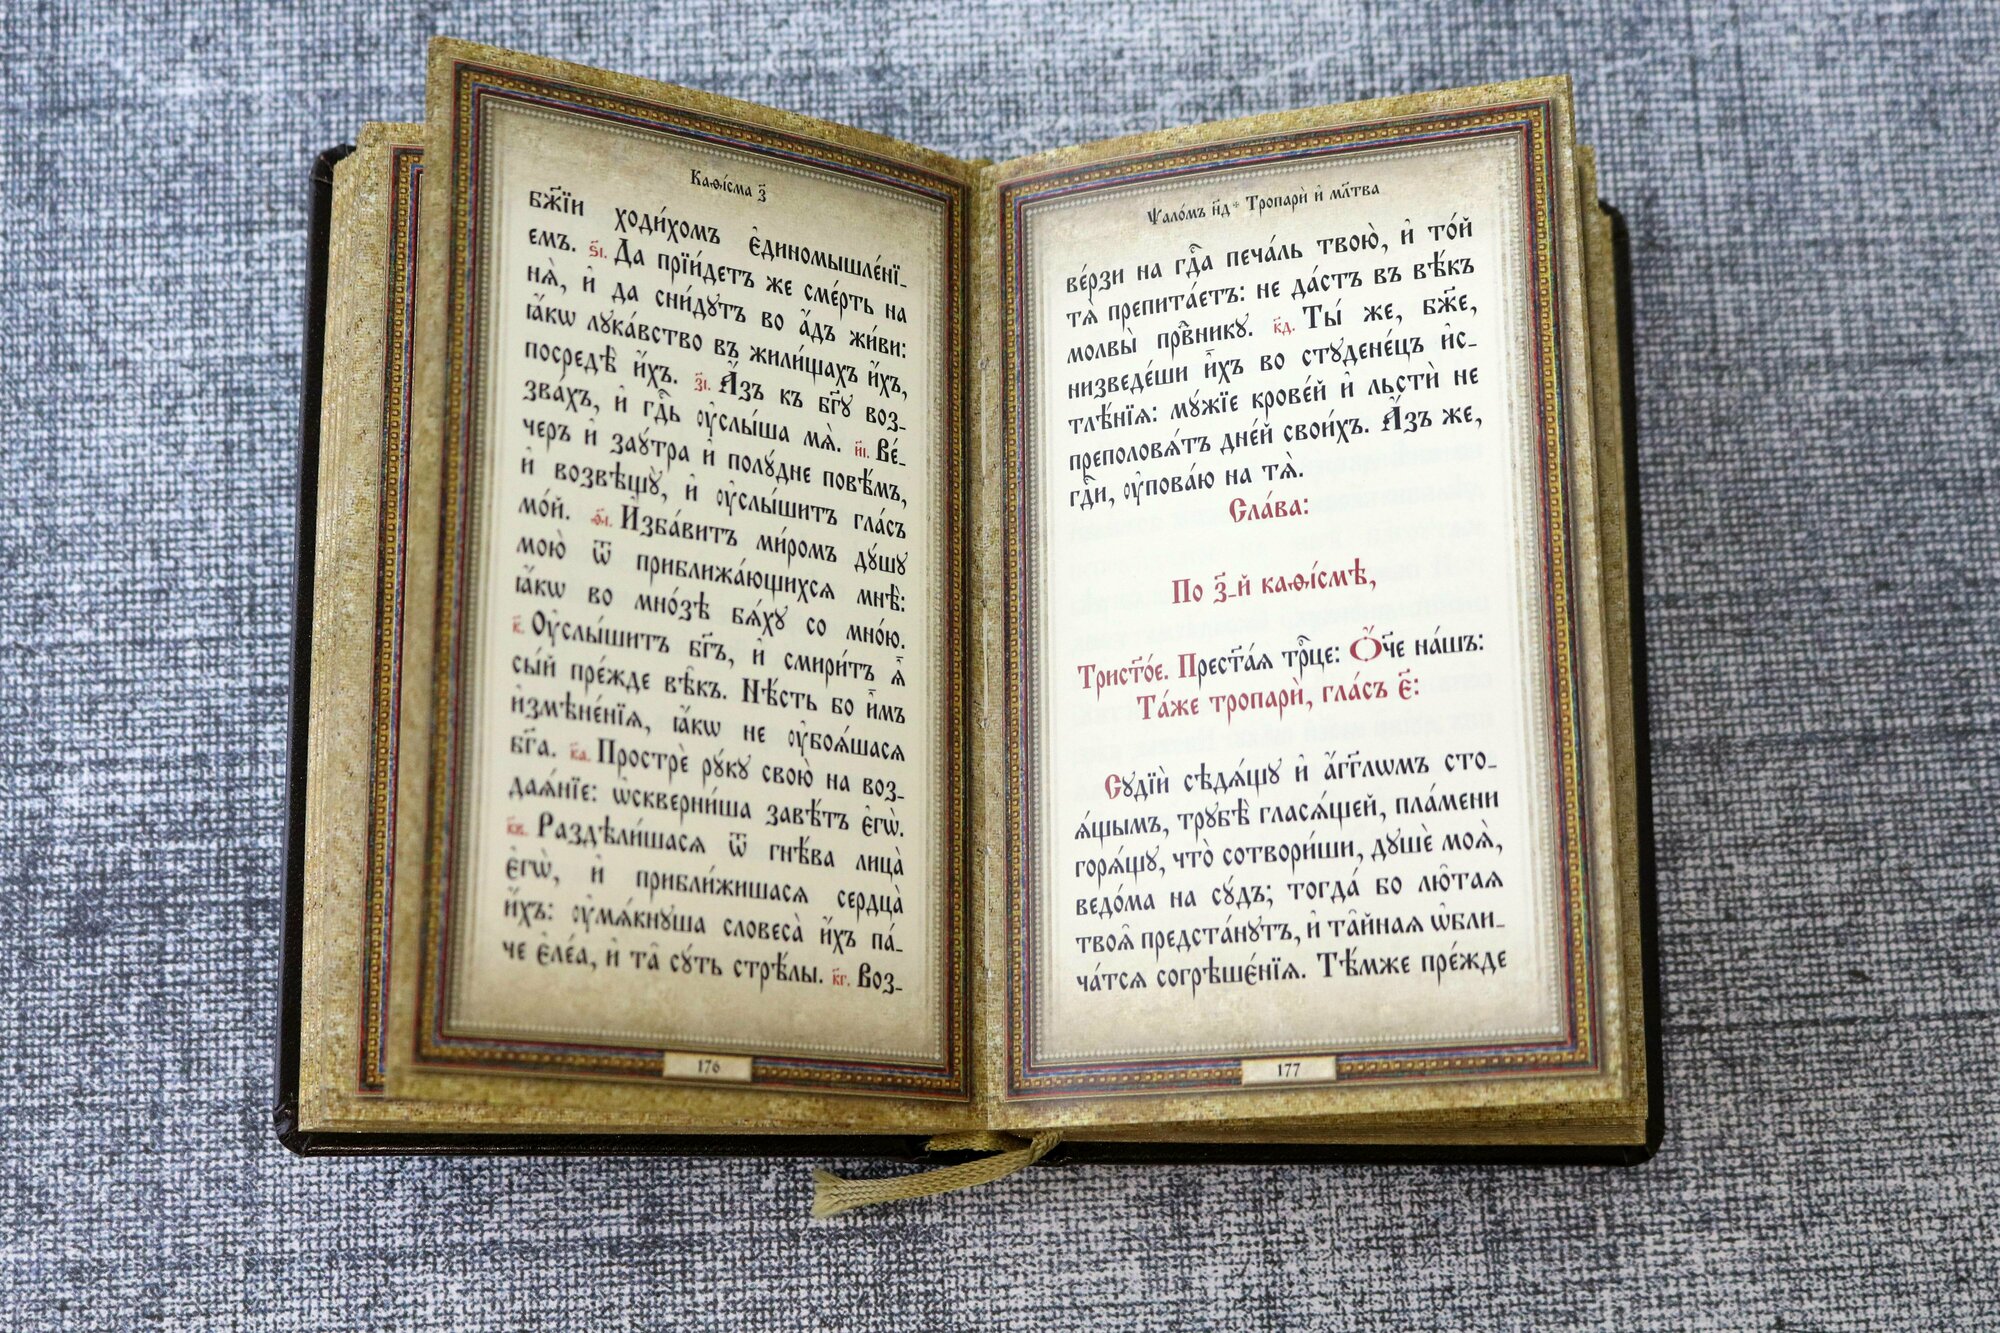 Каѳі́сма з҃
бж҃їи ходи́хомъ є҆диномышле́нї_
емъ. ѕ҃і. Да прїи́детъ же сме́рть на
нѧ̀, и҆ да сни́дꙋтъ во а҆́дъ жи́ви:
ꙗ҆́кѡ лꙋка́вство въ жили́щахъ и҆́хъ,
посредѣ̀ и҆́хъ. з҃і. А҆́зъ къ бг҃ꙋ воз_
зва́хъ, и҆ гдⷭ҇ь ᲂу҆слы́ша мѧ̀. и҃і. Ве́_
черъ и҆ заꙋ́тра и҆ полꙋ́дне повѣ́мъ,
и҆ возвѣщꙋ̀, и҆ ᲂу҆слы́шитъ гла́съ
мо́й. ѳ҃і. И҆зба́витъ ми́ромъ дꙋ́шꙋ
мою̀ ѿ приближа́ющихсѧ мнѣ̀:
ꙗ҆́кѡ во мно́зѣ бѧ́хꙋ со мно́ю.
к҃. Оу҆слы́шитъ бг҃ъ, и҆ смири́тъ ѧ҆̀
сы́й пре́жде вѣ̑къ. Нѣ́сть бо и҆̀мъ
и҆змѣне́нїѧ, ꙗ҆́кѡ не ᲂу҆боѧ́шасѧ
бг҃а. к҃а. Прострѐ рꙋ́кꙋ свою̀ на воз_
даѧ́нїе: ѡ҆скверни́ша завѣ́тъ є҆гѡ̀.
к҃в. Раздѣли́шасѧ ѿ гнѣ́ва лица̀
є҆гѡ̀, и҆ прибли́жишасѧ сердца̀
и҆́хъ: ᲂу҆мѧ́кнꙋша словеса̀ и҆́хъ па́_
че є҆ле́а, и҆ та̑ сꙋ́ть стрѣ́лы. к҃г. Воз_
176
Ѱало́мъ н҃д * Тропарѝ и҆ мл҃тва
ве́рзи на гдⷭ҇а печа́ль твою̀, и҆ то́й
тѧ̀ препита́етъ: не да́стъ въ вѣ́къ
молвы̀ првⷣникꙋ. к҃д. Ты́ же, бж҃е,
низведе́ши и҆̀хъ во стꙋдене́цъ и҆с_
тлѣ́нїѧ: мꙋ́жїе крове́й и҆ льстѝ не
преполовѧ́тъ дне́й свои́хъ. А҆́зъ же,
гдⷭ҇и, ᲂу҆пова́ю на тѧ̀.
Сла́ва:
По з҃_й каѳі́смѣ,
Тристⷭ҇о́е. Престⷭ҇а́ѧ трⷪ҇це: Ѻ҆́ч҃е на́шъ:
Та́же тропарѝ, гла́съ є҃:
Сꙋдїѝ сѣдѧ́щꙋ и҆ а҆́гг҃лѡмъ сто_
ѧ́щымъ, трꙋбѣ̀ гласѧ́щей, пла́мени
горѧ́щꙋ, что̀ сотвори́ши, дꙋшѐ моѧ̀,
ведо́ма на сꙋ́дъ; тогда́ бо лю̑таѧ
твоѧ̑ предста́нꙋтъ, и҆ та̑йнаѧ ѡ҆бли_
ча́тсѧ согрѣшє́нїѧ. Тѣ́мже пре́жде
177